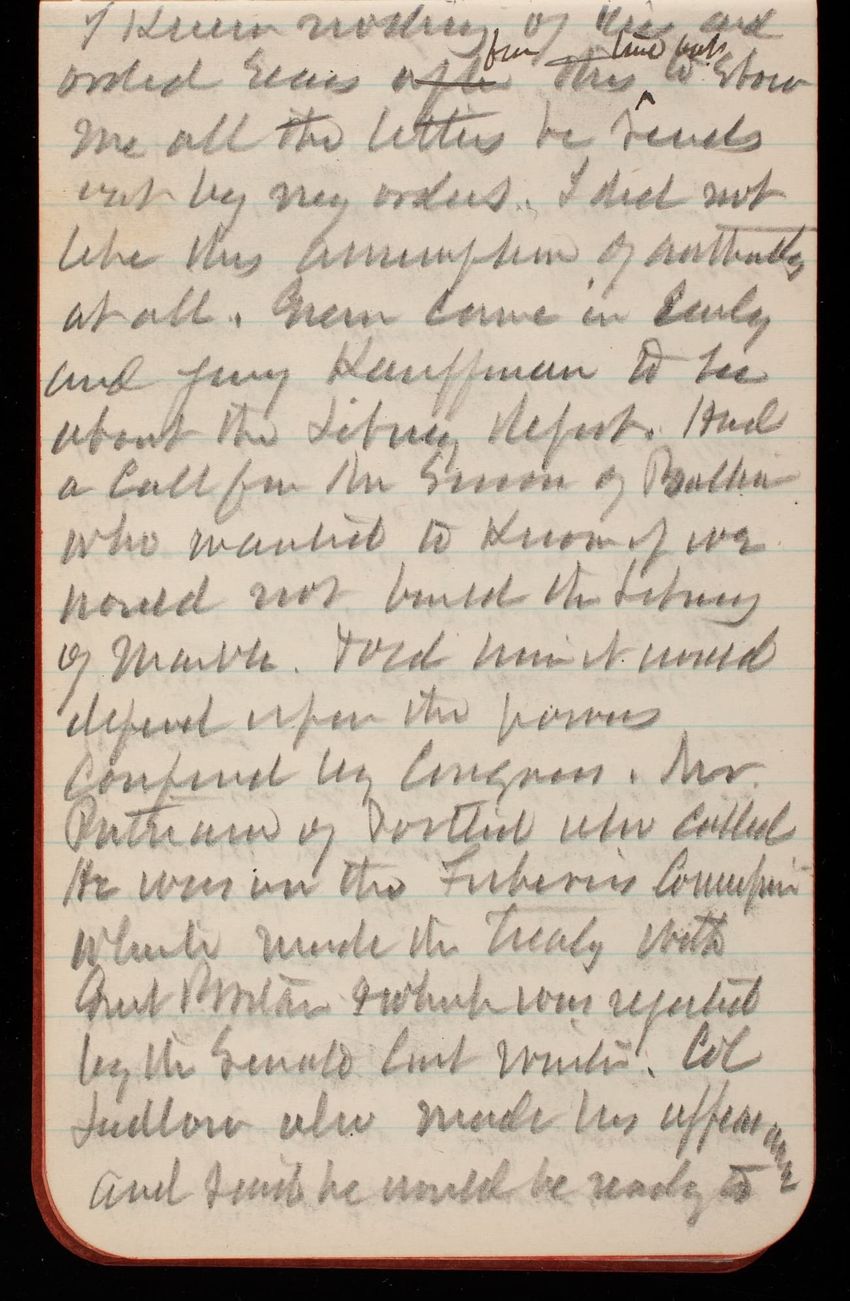 I knew nothing of this and
ordered Genl Casey after from this time on to show
me all the letters he sends
out by my orders. I did not
like this assumption of authority
at all. Green came in early
and Kauffman to see
about the Library depot. Had
a call from Mr of
who wanted to know if we
would not build the Library
of Marble. Told him it would
depend upon the powers
confered by Congress. Mr.
Putnam of also called
He was on the Fisheries Commission
which made the treaty with
Great Britain & which was rejected
by the Senate last winter. Col
Ludlow also made his appearance
and said he would be ready to